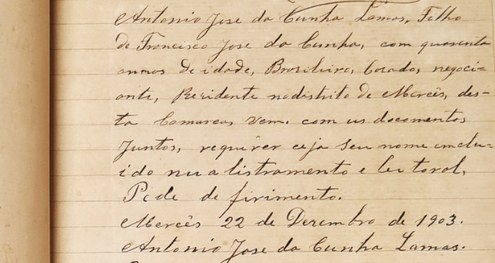 Antonio Jose da Cunha Lamas, Filho
de Francisco Jose da Cunha, com quarenta
annos de idade, Brasileiro, Casado, negoci-
ante, Rezidente nodistrito de Mercês, des-
ta Comarca, vem. com os documentos
Juntos, requirer ceja seu nome inclu-
ido nu alistramento e leitoral,
Pede de firimento.
Mercês 22 de Dezembro de 1903.
Antonio Jose da Cunha Lamas.